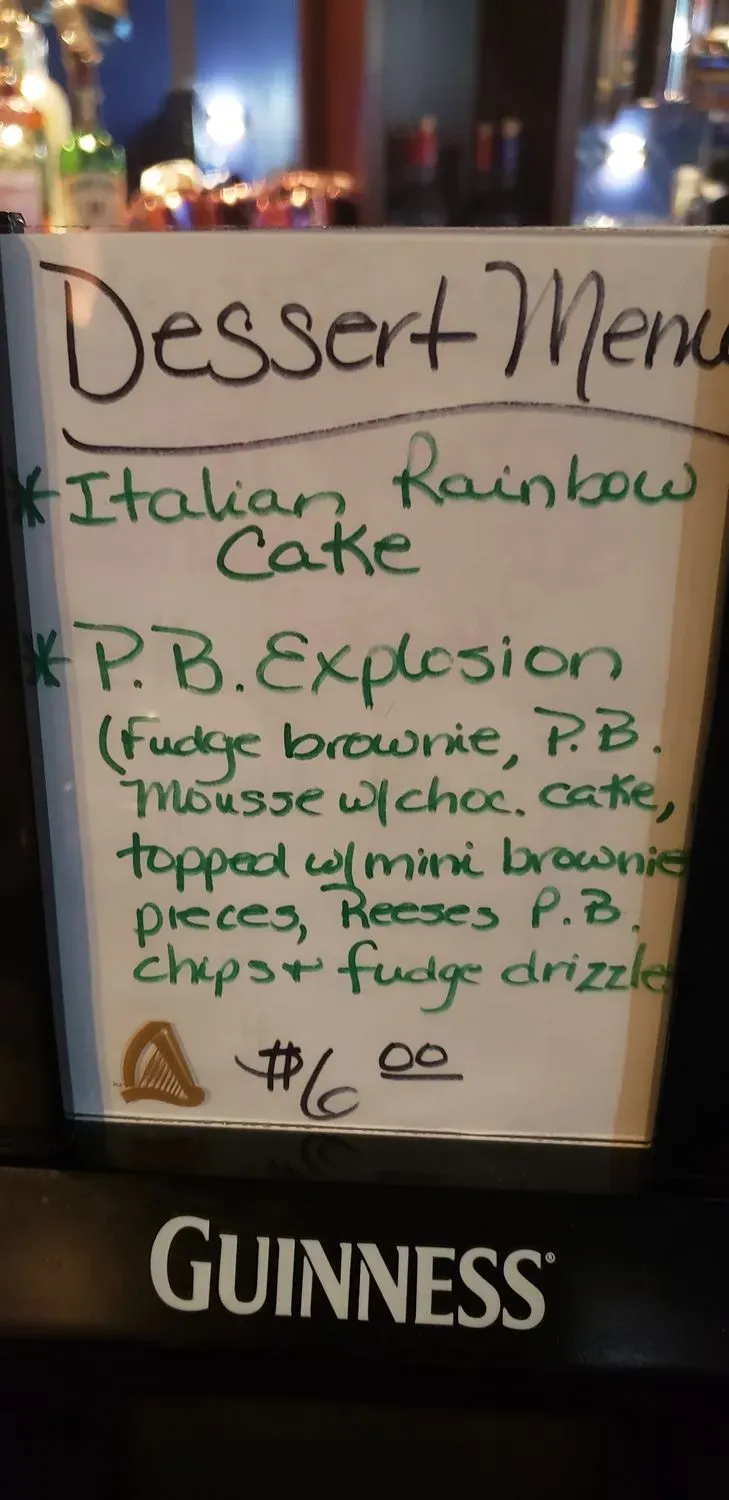 Dessert Menu
* Italian Rainbow
Cake
* P.B. Explosion
(fudge brownie, P.B.
Mousse w/choc. cake,
topped w/mini brownie
pieces, Reeses P.B.
chips + fudge drizzle
$6 00
GUINNESS®